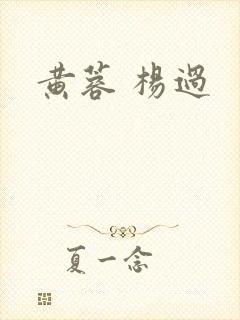 黄蓉 楊過
夏一念